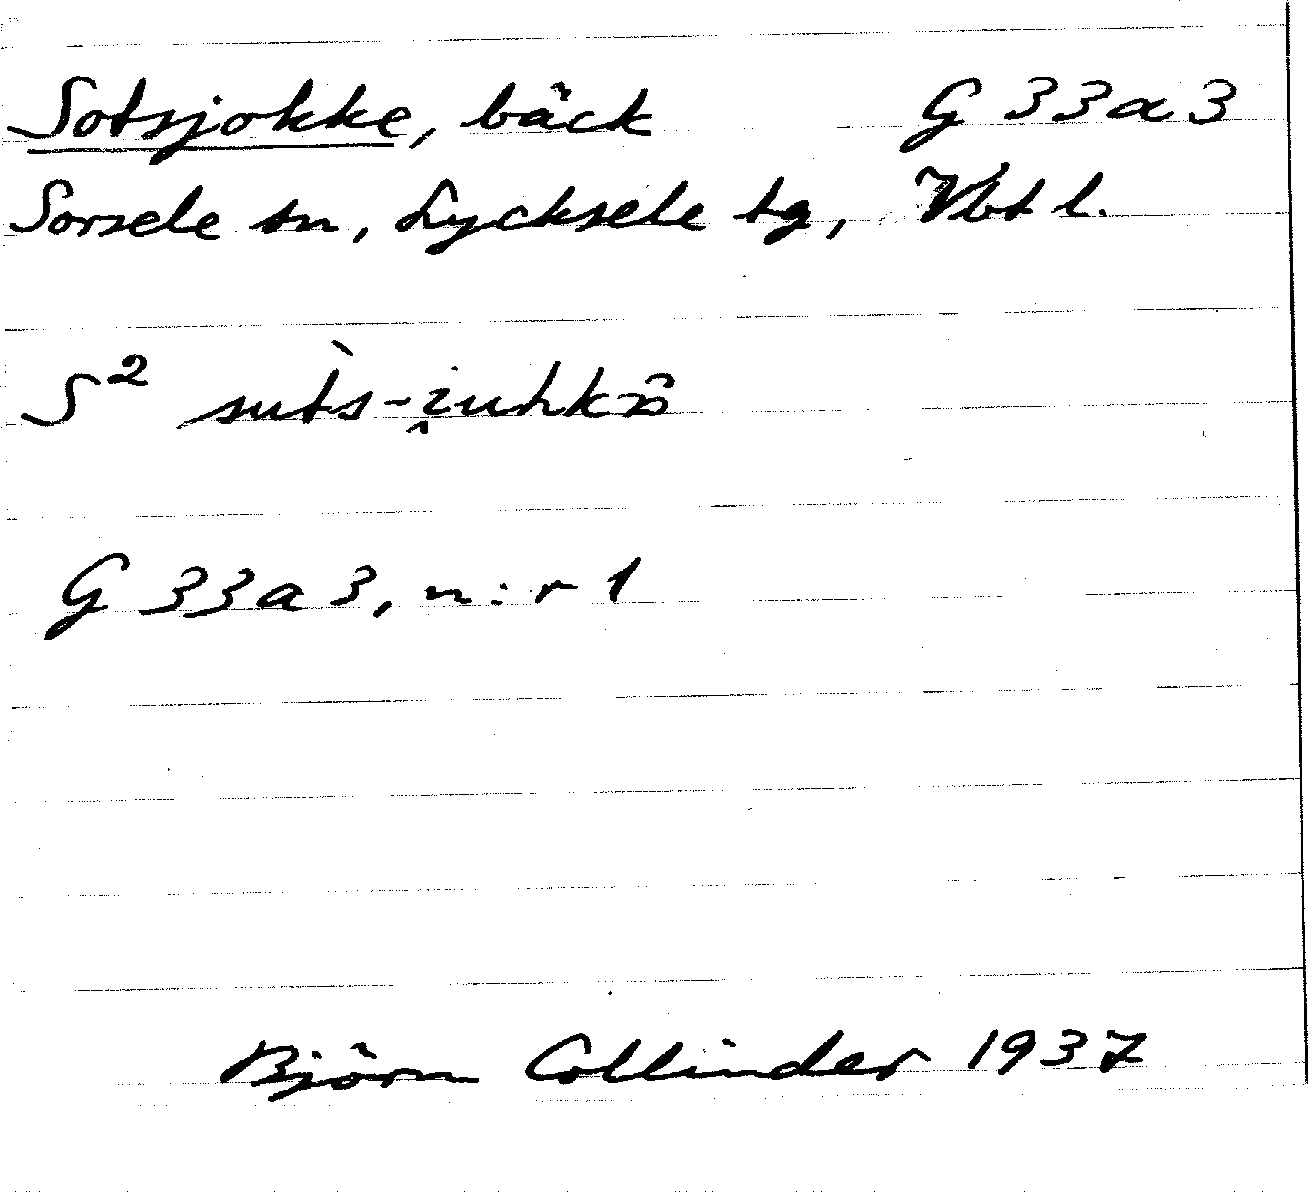 Sotsjokke, bäck G 33a3
Sorsele sn, Lycksele tg, Vbt l.
S² sut̀s-i̯uhkɔ̂
G 33a3, n:r 1
Björn Collinder 1937